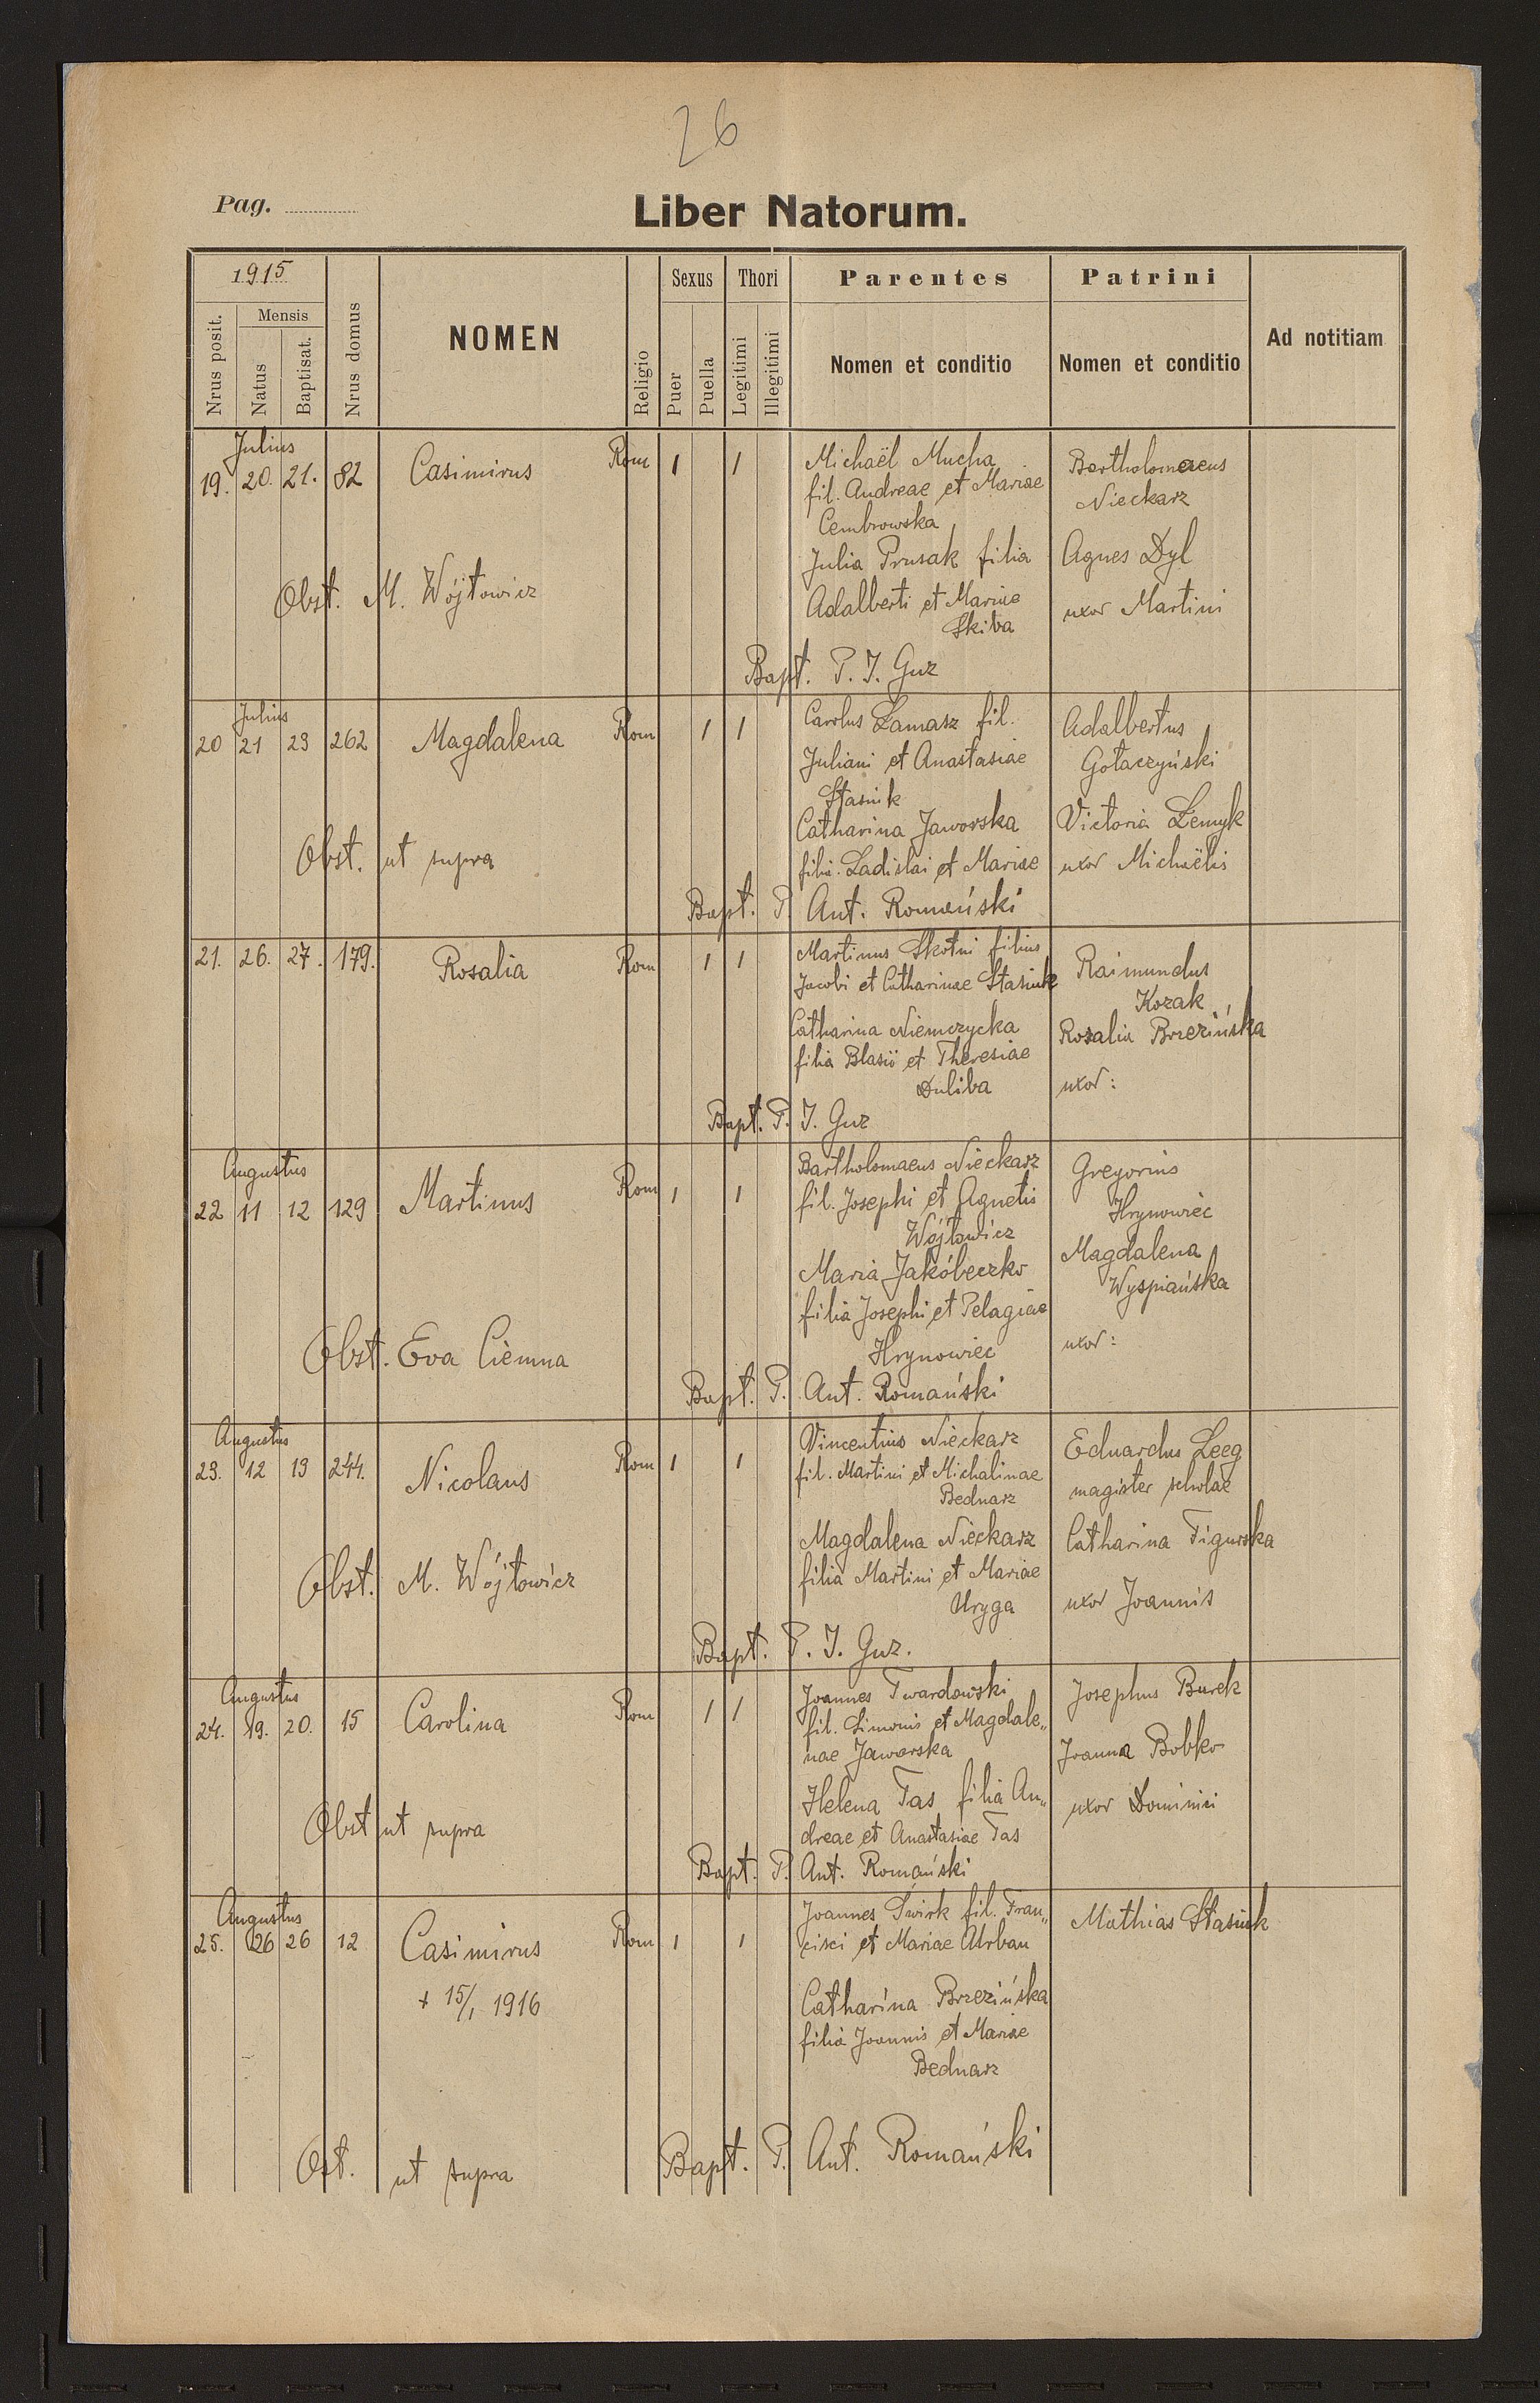 26
Pag.
Liber Natorum.
1915
Nrus posit.
Mensis
Natus
Baptisat.
Nrus domus
NOMEN
Religio
Sexus
Puer
Puella
Thori
Legitimi
Illegitimi
Parentes
Nomen et conditio
Patrini
Nomen et conditio
Ad notitiam
Julius
19. 20. 21. 82 Casimirus Rom 1 1
Michaël Mucha
fil. Andreae et Mariae
Cembrowska
Julia Prusak filia
Adalberti et Mariae
Skiba
Bartholomaeus
Nieckarz
Agnes Dyl
uxor Martini
Obst. M. Wójtowicz
Bapt. P. J. Guz
Julius
20 21 23 262 Magdalena Rom 1 1
Carolus Łamasz fil.
Juliani et Anastasiae
Stasiuk
Catharina Jaworska
filia Ladislai et Mariae
Adalbertus
Gołaczyński
Victoria Łemyk
uxor Michaëlis
Obst. ut supra
Bapt. P. Ant. Romański
21. 26. 27. 179. Rosalia Rom 1 1
Martinus Skotni filius
Jacobi et Catharinae Stasiuk
Catharina Niemczycka
filia Blasii et Theresiae
Duliba
Raimundus
Kozak
Rosalia Brzezińska
uxor:
Bapt. P. J. Guz
Augustus
22 11 12 129 Martinus Rom 1 1
Bartholomaeus Nieckarz
fil. Josephi et Agnetis
Wójtowicz
Maria Jakóbeczko
filia Josephi et Pelagiae
Hrynowiec
Gregorius
Hrynowiec
Magdalena
Wyspiańska
uxor:
Obst. Eva Ciemna
Bapt. P. Ant. Romański
Augustus
23. 12 13 244. Nicolaus Rom 1 1
Vincentius Nieckarz
fil. Martini et Michalinae
Bednarz
Magdalena Nieckarz
filia Martini et Mariae
Uryga
Eduardus Leeg
magister scholae
Catharina Figurska
uxor Joannis
Obst. M. Wójtowicz
Bapt. P. J. Guz.
Augustus
24. 19. 20. 15 Carolina Rom 1 1
Joannes Twardowski
fil. Simonis et Magdale„
nae Jaworska
Helena Tas filia An„
dreae et Anastasiae Tas
Josephus Burek
Joanna Bobko
uxor Dominici
Obst ut supra
Bapt. P. Ant. Romański
Augustus
25. 26 26 12 Casimirus Rom 1 1
+ 15/1 1916
Joannes Świrk fil. Fran„
cisci et Mariae Urban
Catharina Brzezińska
filia Joannis et Mariae
Bednarz
Mathias Stasiuk
Ost. ut supra
Bapt. P. Ant. Romański